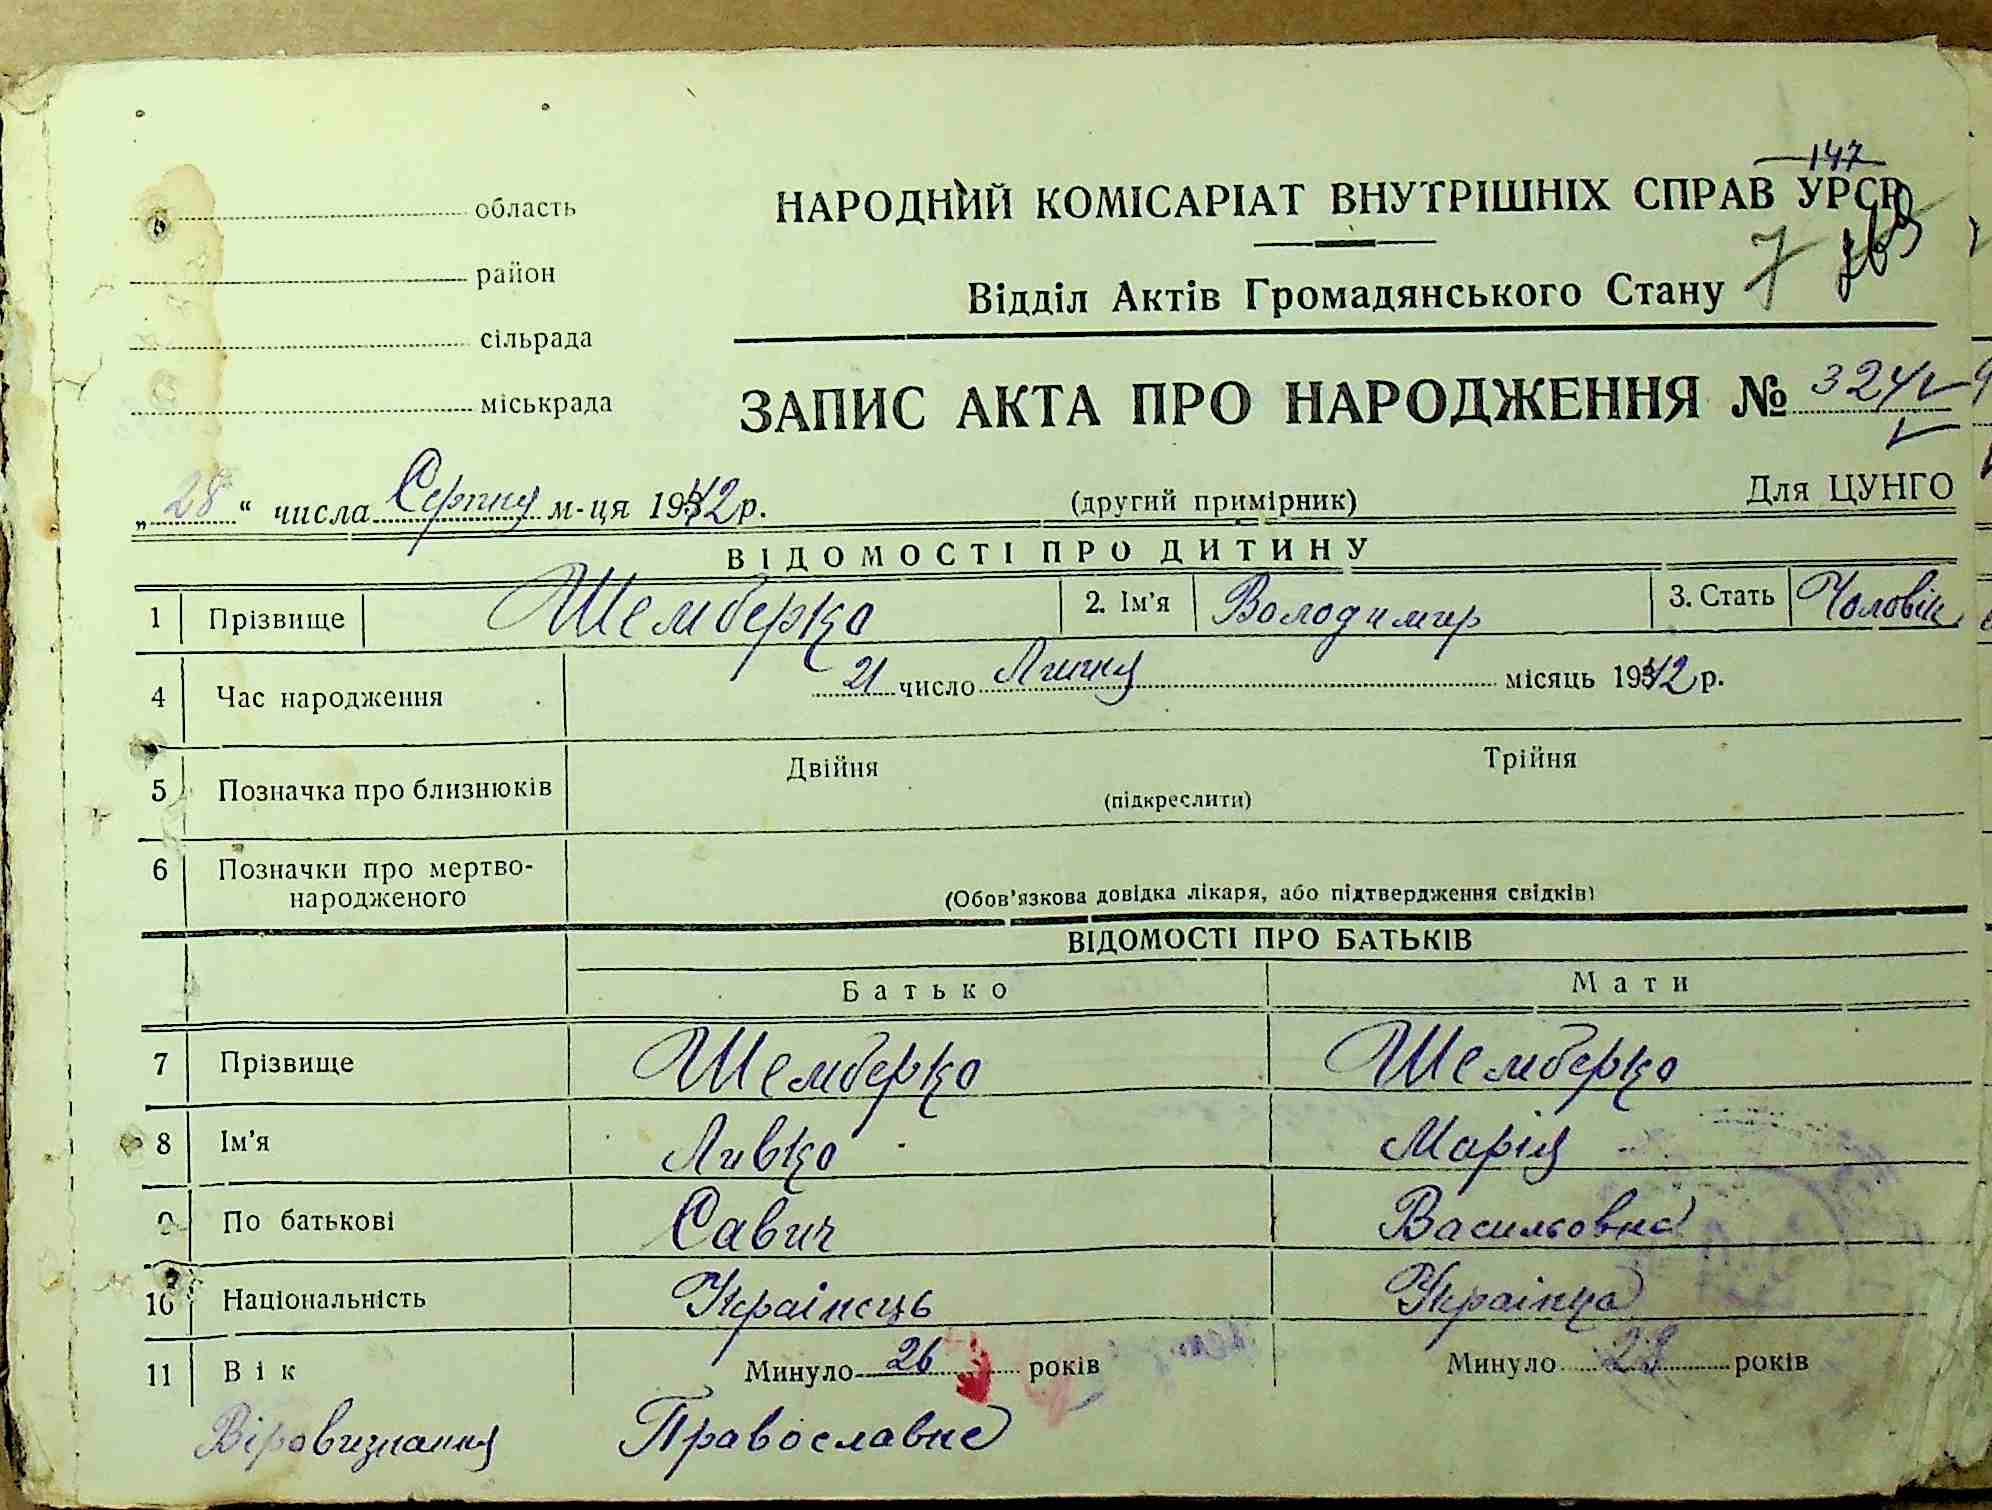 147
область НАРОДНИЙ КОМІСАРІАТ ВНУТРІШНІХ СПРАВ УРСР
район Відділ Актів Громадянського Стану 7
сільрада
міськрада ЗАПИС АКТА ПРО НАРОДЖЕННЯ № 324
„28“ числа Серпня м-ця 1942 р. (другий примірник) Для ЦУНГО
ВІДОМОСТІ ПРО ДИТИНУ
1 Прізвище Шемберко 2. Ім'я Володимир 3. Стать Чоловіч
4 Час народження 21 число Липня місяць 1942 р.
5 Позначка про близнюків Двійня Трійня
(підкреслити)
6 Позначки про мертво-
народженого (Обов'язкова довідка лікаря, або підтвердження свідків)
ВІДОМОСТІ ПРО БАТЬКІВ
Батько Мати
7 Прізвище Шемберко Шемберко
8 Ім'я Ливко Марія
9 По батькові Савич Васильовна
10 Національність Українець Українца
11 Вік Минуло 26 років Минуло 28 років
Віровизнання Православне